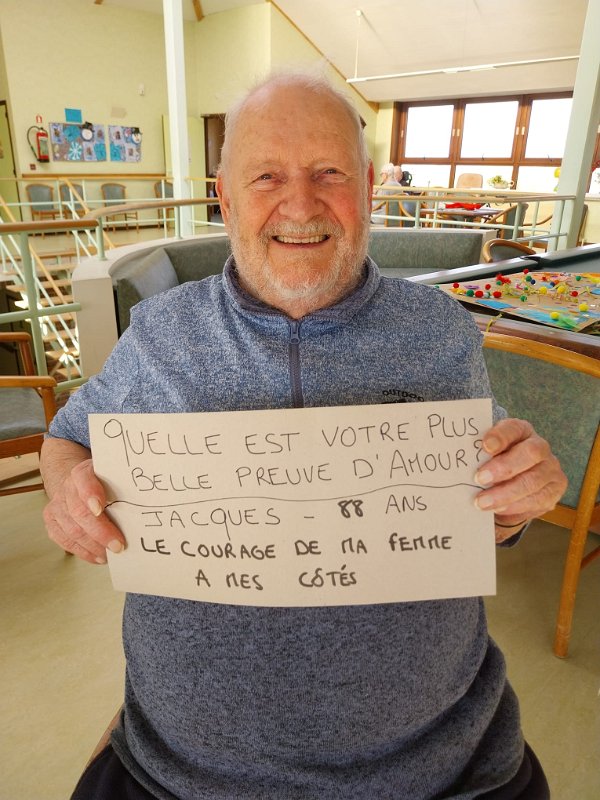 QUELLE EST VOTRE PLUS
BELLE PREUVE D'AMOUR?
JACQUES - 88 ANS
LE COURAGE DE MA FEMME
A MES CÔTÉS
OUTDOOR